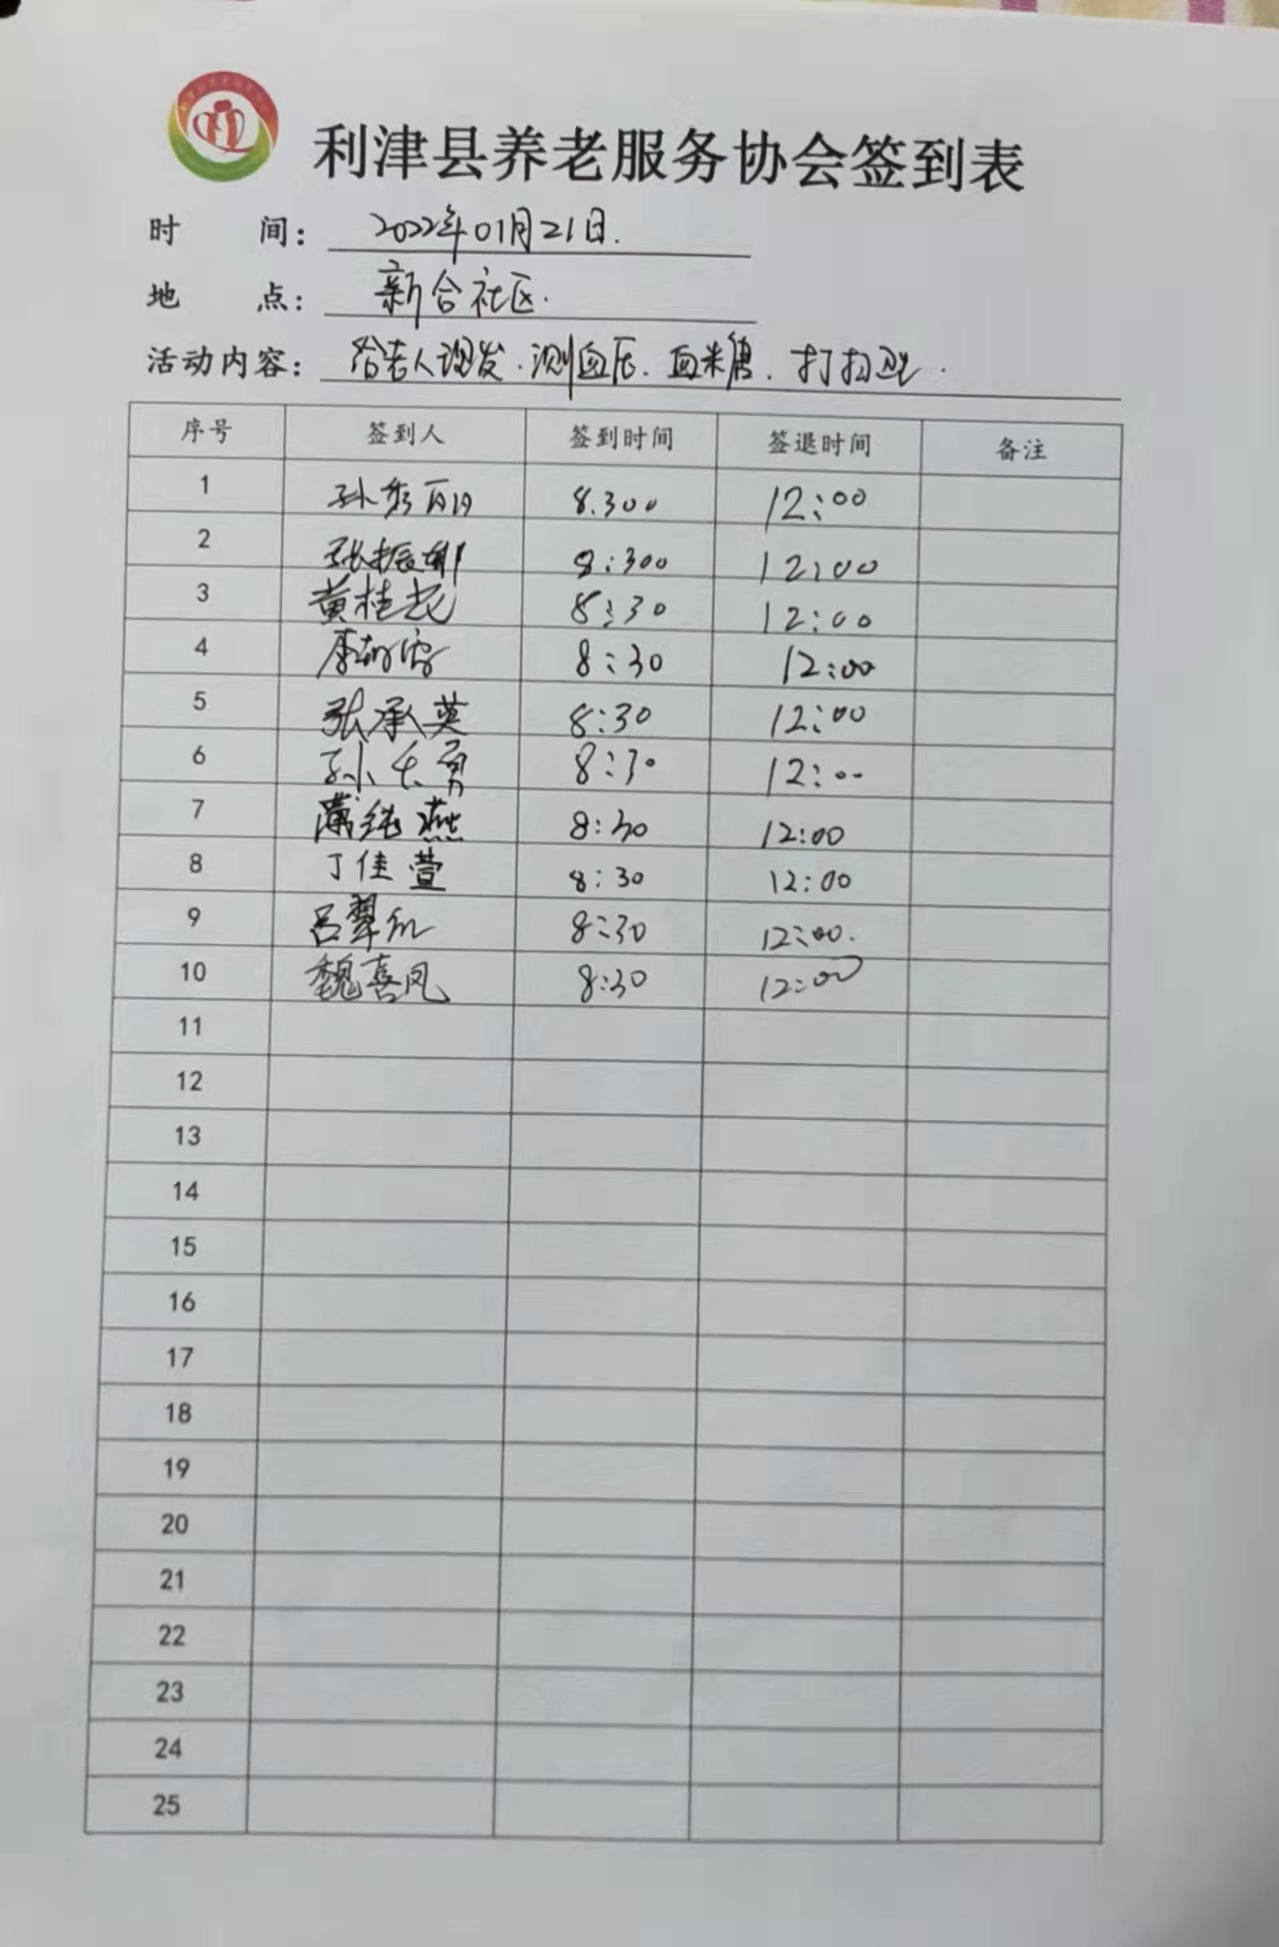 利津县养老服务协会签到表
时 间： 2022年01月21日.
地 点： 新合社区.
活动内容： 给老人理发.测血压.血糖.打扫卫生.
序号 签到人 签到时间 签退时间 备注
1 孙秀丽 8.300 12:00
2 张振邦 8:300 12:00
3 黄桂花 8:30 12:00
4 李 8:30 12:00
5 张承英 8:30 12:00
6 孙长勇 8:30 12:00
7 燕 8:30 12:00
8 丁佳萱 8:30 12:00
9 吕翠红 8:30 12:00.
10 魏喜凤 8:30 12:00
11
12
13
14
15
16
17
18
19
20
21
22
23
24
25